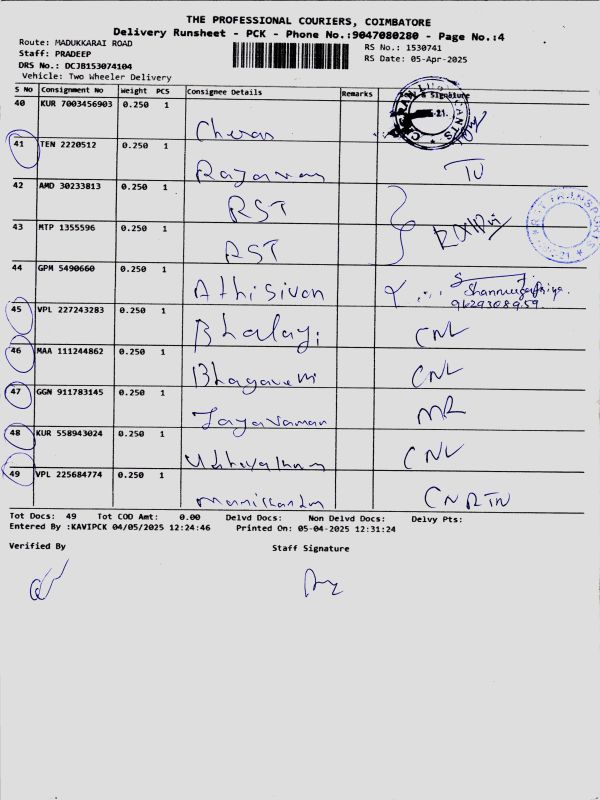 THE PROFESSIONAL COURIERS, COIMBATORE
Delivery Runsheet - PCK - Phone No.:9047080280 - Page No.:4
Route: MADUKKARAI ROAD
RS No.: 1530741
Staff: PRADEEP
RS Date: 05-Apr-2025
DRS No.: DCJB153074104
Vehicle: Two Wheeler Delivery
S No Consignment No Weight PCS Consignee Details Remarks & Signature
40 KUR 7003456903 0.250 1
Cheran
41 TEN 2220512 0.250 1
42 AMD 30233813 0.250 1
RST
43 MTP 1355596 0.250 1
RST
44 GPM 5490660 0.250 1 Athisivan
Shanmugapriya.
9629308959
45 VPL 227243283 0.250 1 Bhalaji CNL
46 MAA 111244862 0.250 1 CNL
47 GGN 911783145 0.250 1 Jayaraman MR
48 KUR 558943024 0.250 1 CNL
49 VPL 225684774 0.250 1
Tot Docs: 49 Tot COD Amt: 0.00 Delvd Docs: Non Delvd Docs: Delvy Pts:
Entered By :KAVIPCK 04/05/2025 12:24:46 Printed On: 05-04-2025 12:31:24
Verified By Staff Signature